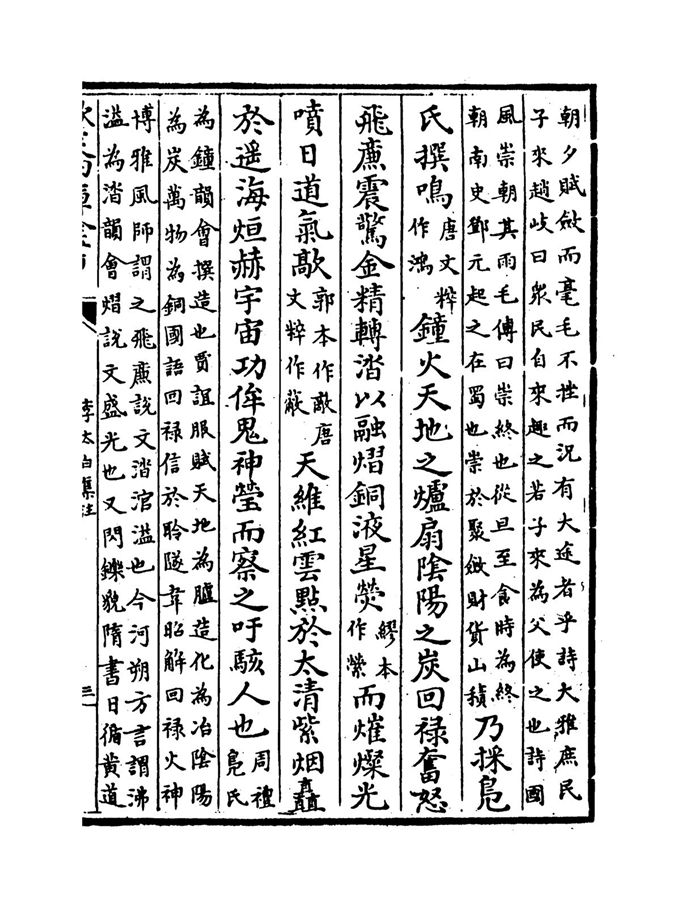 朝夕賦斂而毫毛不挫而況有大逵者乎詩大雅庶民
子來趙岐曰衆民自來趣之若子來為父使之也詩國
風崇朝其雨毛傳曰崇終也從旦至食時為終
朝南史鄧元起之在蜀也崇於聚斂財貨山積
乃採鳧
氏撰鳴
唐文粹
作鴻
鐘火天地之爐扇陰陽之炭回祿奮怒
飛廉震驚金精轉涾以融熠銅液星熒
繆本
作縈
而熣燦光
噴日道氣歊
郭本作敵唐
文粹作蔽
天維紅雲點於太清紫烟矗
於遥海烜赫宇宙功侔鬼神瑩而察之吁駭人也
周禮
鳧氏
為鐘韻會撰造也賈誼服賦天地為臚造化為冶陰陽
為炭萬物為銅國語回祿信於聆隧韋昭解回祿火神
博雅風師謂之飛廉說文涾涫溢也今河朔方言謂沸
溢為涾韻會熠說文盛光也又閃鑠貌隋書日循黄道
李太白集注
三